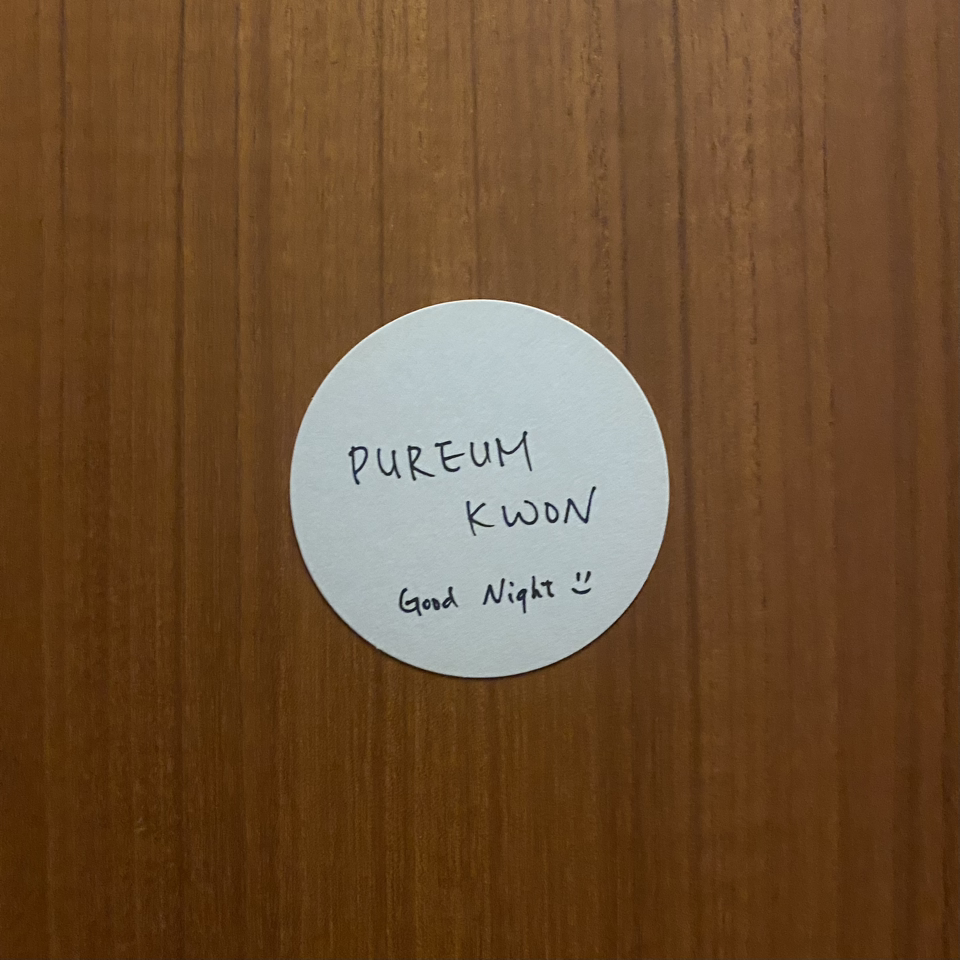 PUREUM
KWON
Good Night :)